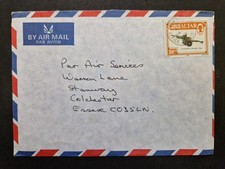 BY AIR MAIL
PAR AVION
GIBRALTAR
Par Air Services
Warren Lane
Stanway
Colchester
Essex CO35LN.